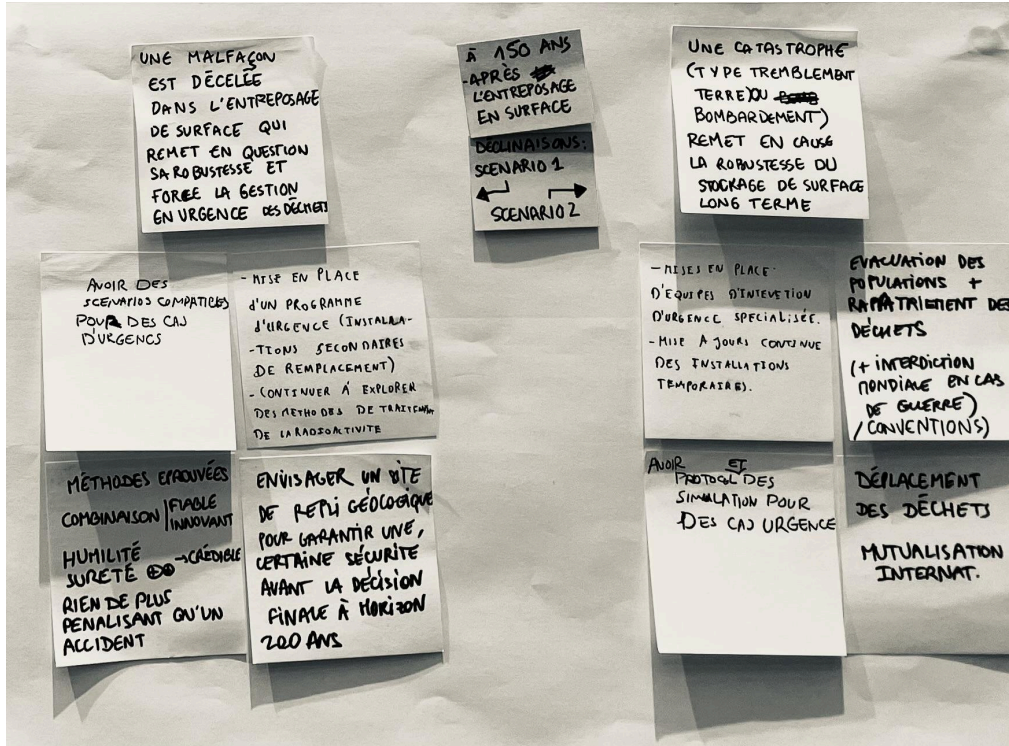 UNE MALFAÇON
EST DÉCELÉE
DANS L'ENTREPOSAGE
DE SURFACE QUI
REMET EN QUESTION
SA ROBUSTESSE ET
FORCE LA GESTION
EN URGENCE DES DÉCHETS
À 150 ANS
-APRÈS
L'ENTREPOSAGE
EN SURFACE
DÉCLINAISONS:
SCENARIO 1
SCENARIO 2
UNE CATASTROPHE
(TYPE TREMBLEMENT
TERRE) OU
BOMBARDEMENT)
REMET EN CAUSE
LA ROBUSTESSE DU
STOCKAGE DE SURFACE
LONG TERME
AVOIR DES
SCENARIOS COMPATICLES
POUR DES CAS
D'URGENCS
- MISE EN PLACE
D'UN PROGRAMME
D'URGENCE (INSTALLA-
-TIONS SECONDAIRES
DE REMPLACEMENT)
- CONTINUER À EXPLORER
DES METHODES DE TRAITEMENT
DE LA RADIOACTIVITE
- MISES EN PLACE
D'EQUIPES D'INTEVETION
D'URGENCE SPECIALISÉE.
- MISE A JOURS CONTINUE
DES INSTALLATIONS
TEMPORAIRES.
EVACUATION DES
POPULATIONS +
RAPATRIEMENT DES
DÉCHETS
(+ INTERDICTION
MONDIALE EN CAS
DE GUERRE)
/CONVENTIONS)
MÉTHODES EPROUVÉES
COMBINAISON | FIABLE
INNOVANT
HUMILITÉ
SURETÉ → CRÉDIBLE
RIEN DE PLUS
PENALISANT QU'UN
ACCIDENT
ENVISAGER UN SITE
DE REPLI GÉOLOGIQUE
POUR GARANTIR UNE,
CERTAINE SÉCURITÉ
AVANT LA DÉCISION
FINALE À HORIZON
200 ANS
AVOIR ET
PROTOCOL DES
SIMULATION POUR
DES CAS URGENCE
DÉPLACEMENT
DES DÉCHETS
MUTUALISATION
INTERNAT.